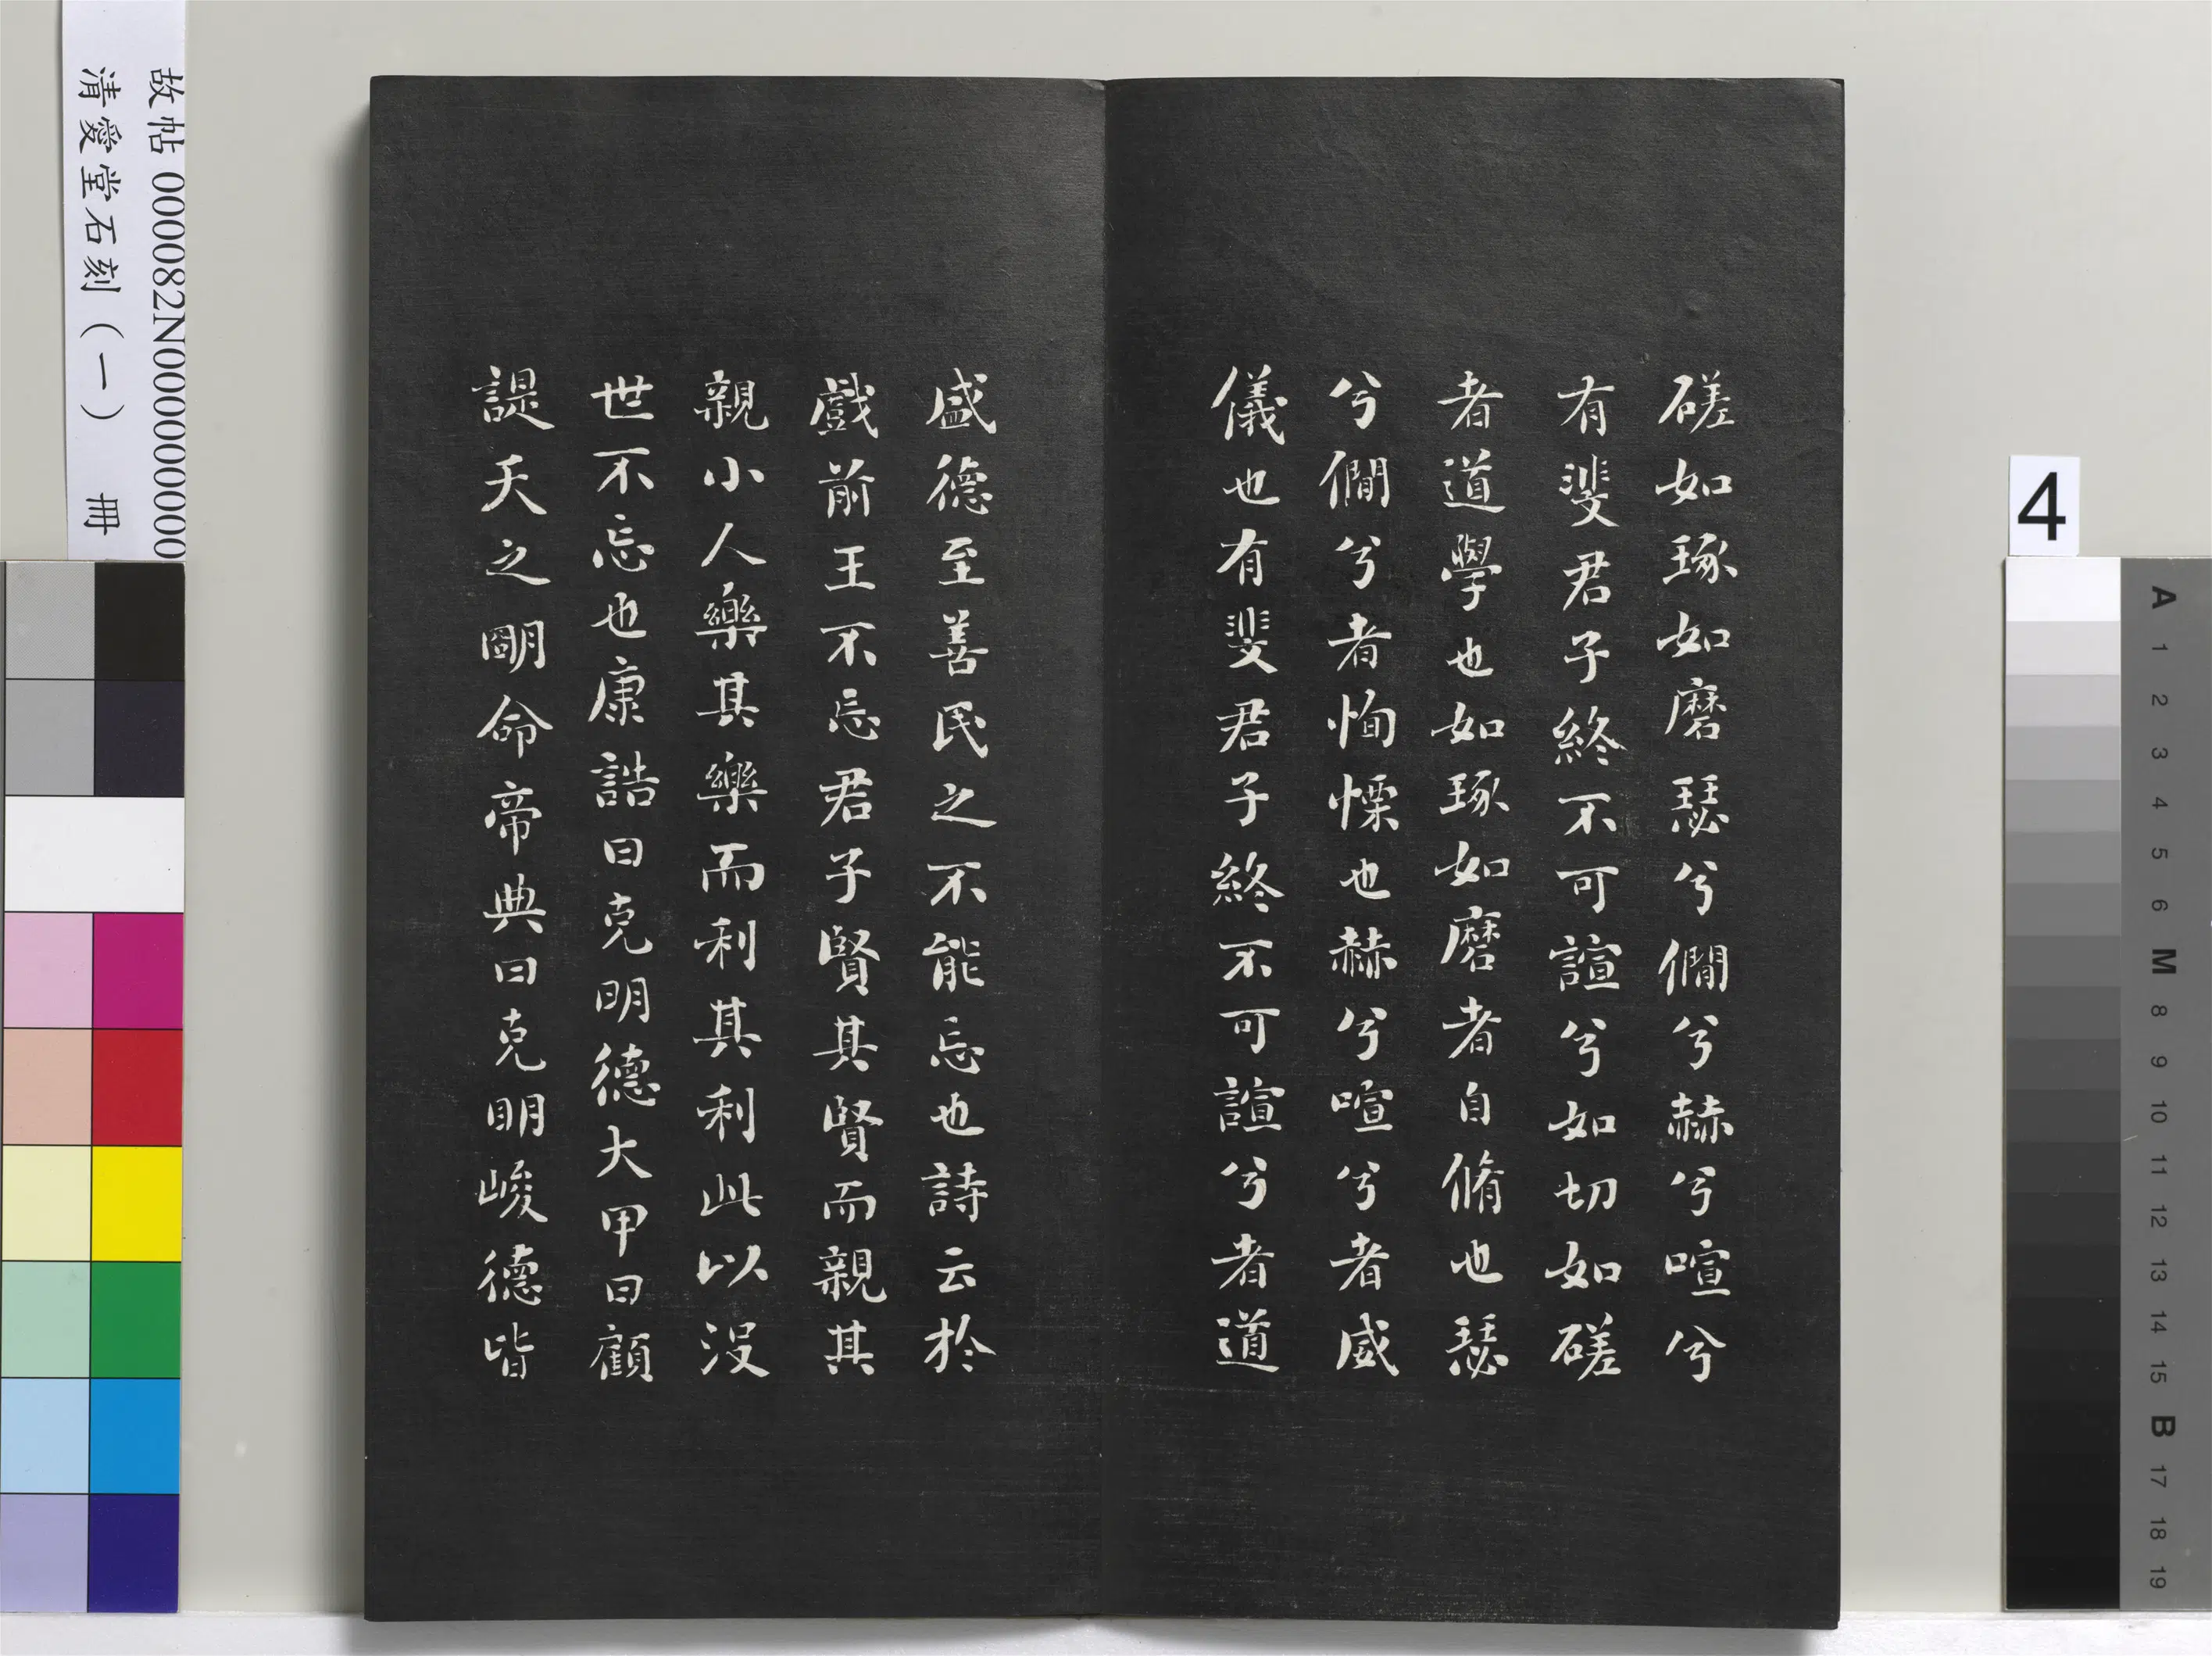 磋如琢如磨瑟兮僩兮赫兮喧兮
有斐君子終不可諠兮如切如磋
者道學也如琢如磨者自脩也瑟
兮僩兮者恂慄也赫兮喧兮者威
儀也有斐君子終不可諠兮者道
盛德至善民之不能忘也詩云於
戲前王不忘君子賢其賢而親其
親小人樂其樂而利其利此以沒
世不忘也康誥曰克明德大甲曰顧
諟天之明命帝典曰克明峻德皆
故帖 000082N000000000
清愛堂石刻(一) 冊
4
A
1
2
3
4
5
6
M
8
9
10
11
12
13
14
15
B
17
18
19